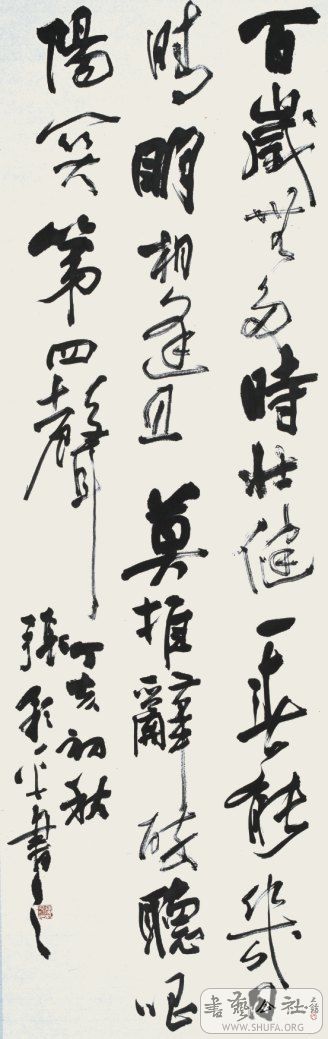 百歲無多時壯健一春能幾日
晴明相逢且莫推辭醉聽唱
陽關第四聲
丁亥初秋
張 平書之
書藝公社
WWW.SHUFA.ORG